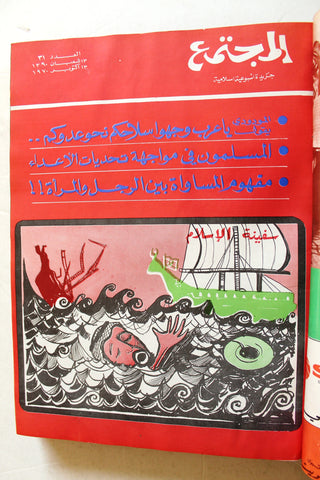 المجتمع
جريدة أسبوعية إسلامية
العدد ٣١
١٣ شعبان ١٣٩٠
١٣ أكتوبر ١٩٧٠
يا عرب وجهوا سلاحكم نحو عدوكم ..
المسلمون في مواجهة تحديات الأعداء
مفهوم المساواة بين الرجل والمرأة !!
سفينة الإسلام